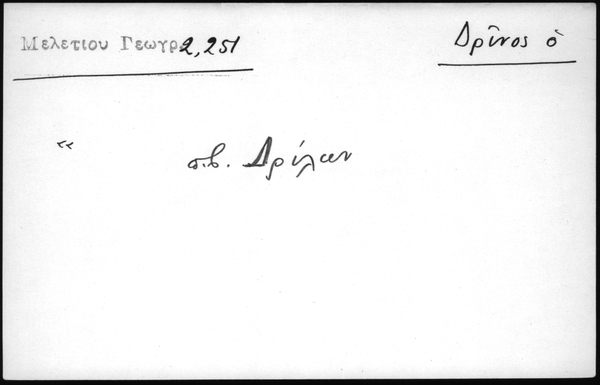 Μελετιου Γεωγρ. 2,251
Δρῖνος ὁ
« σ.β. Δρίλων